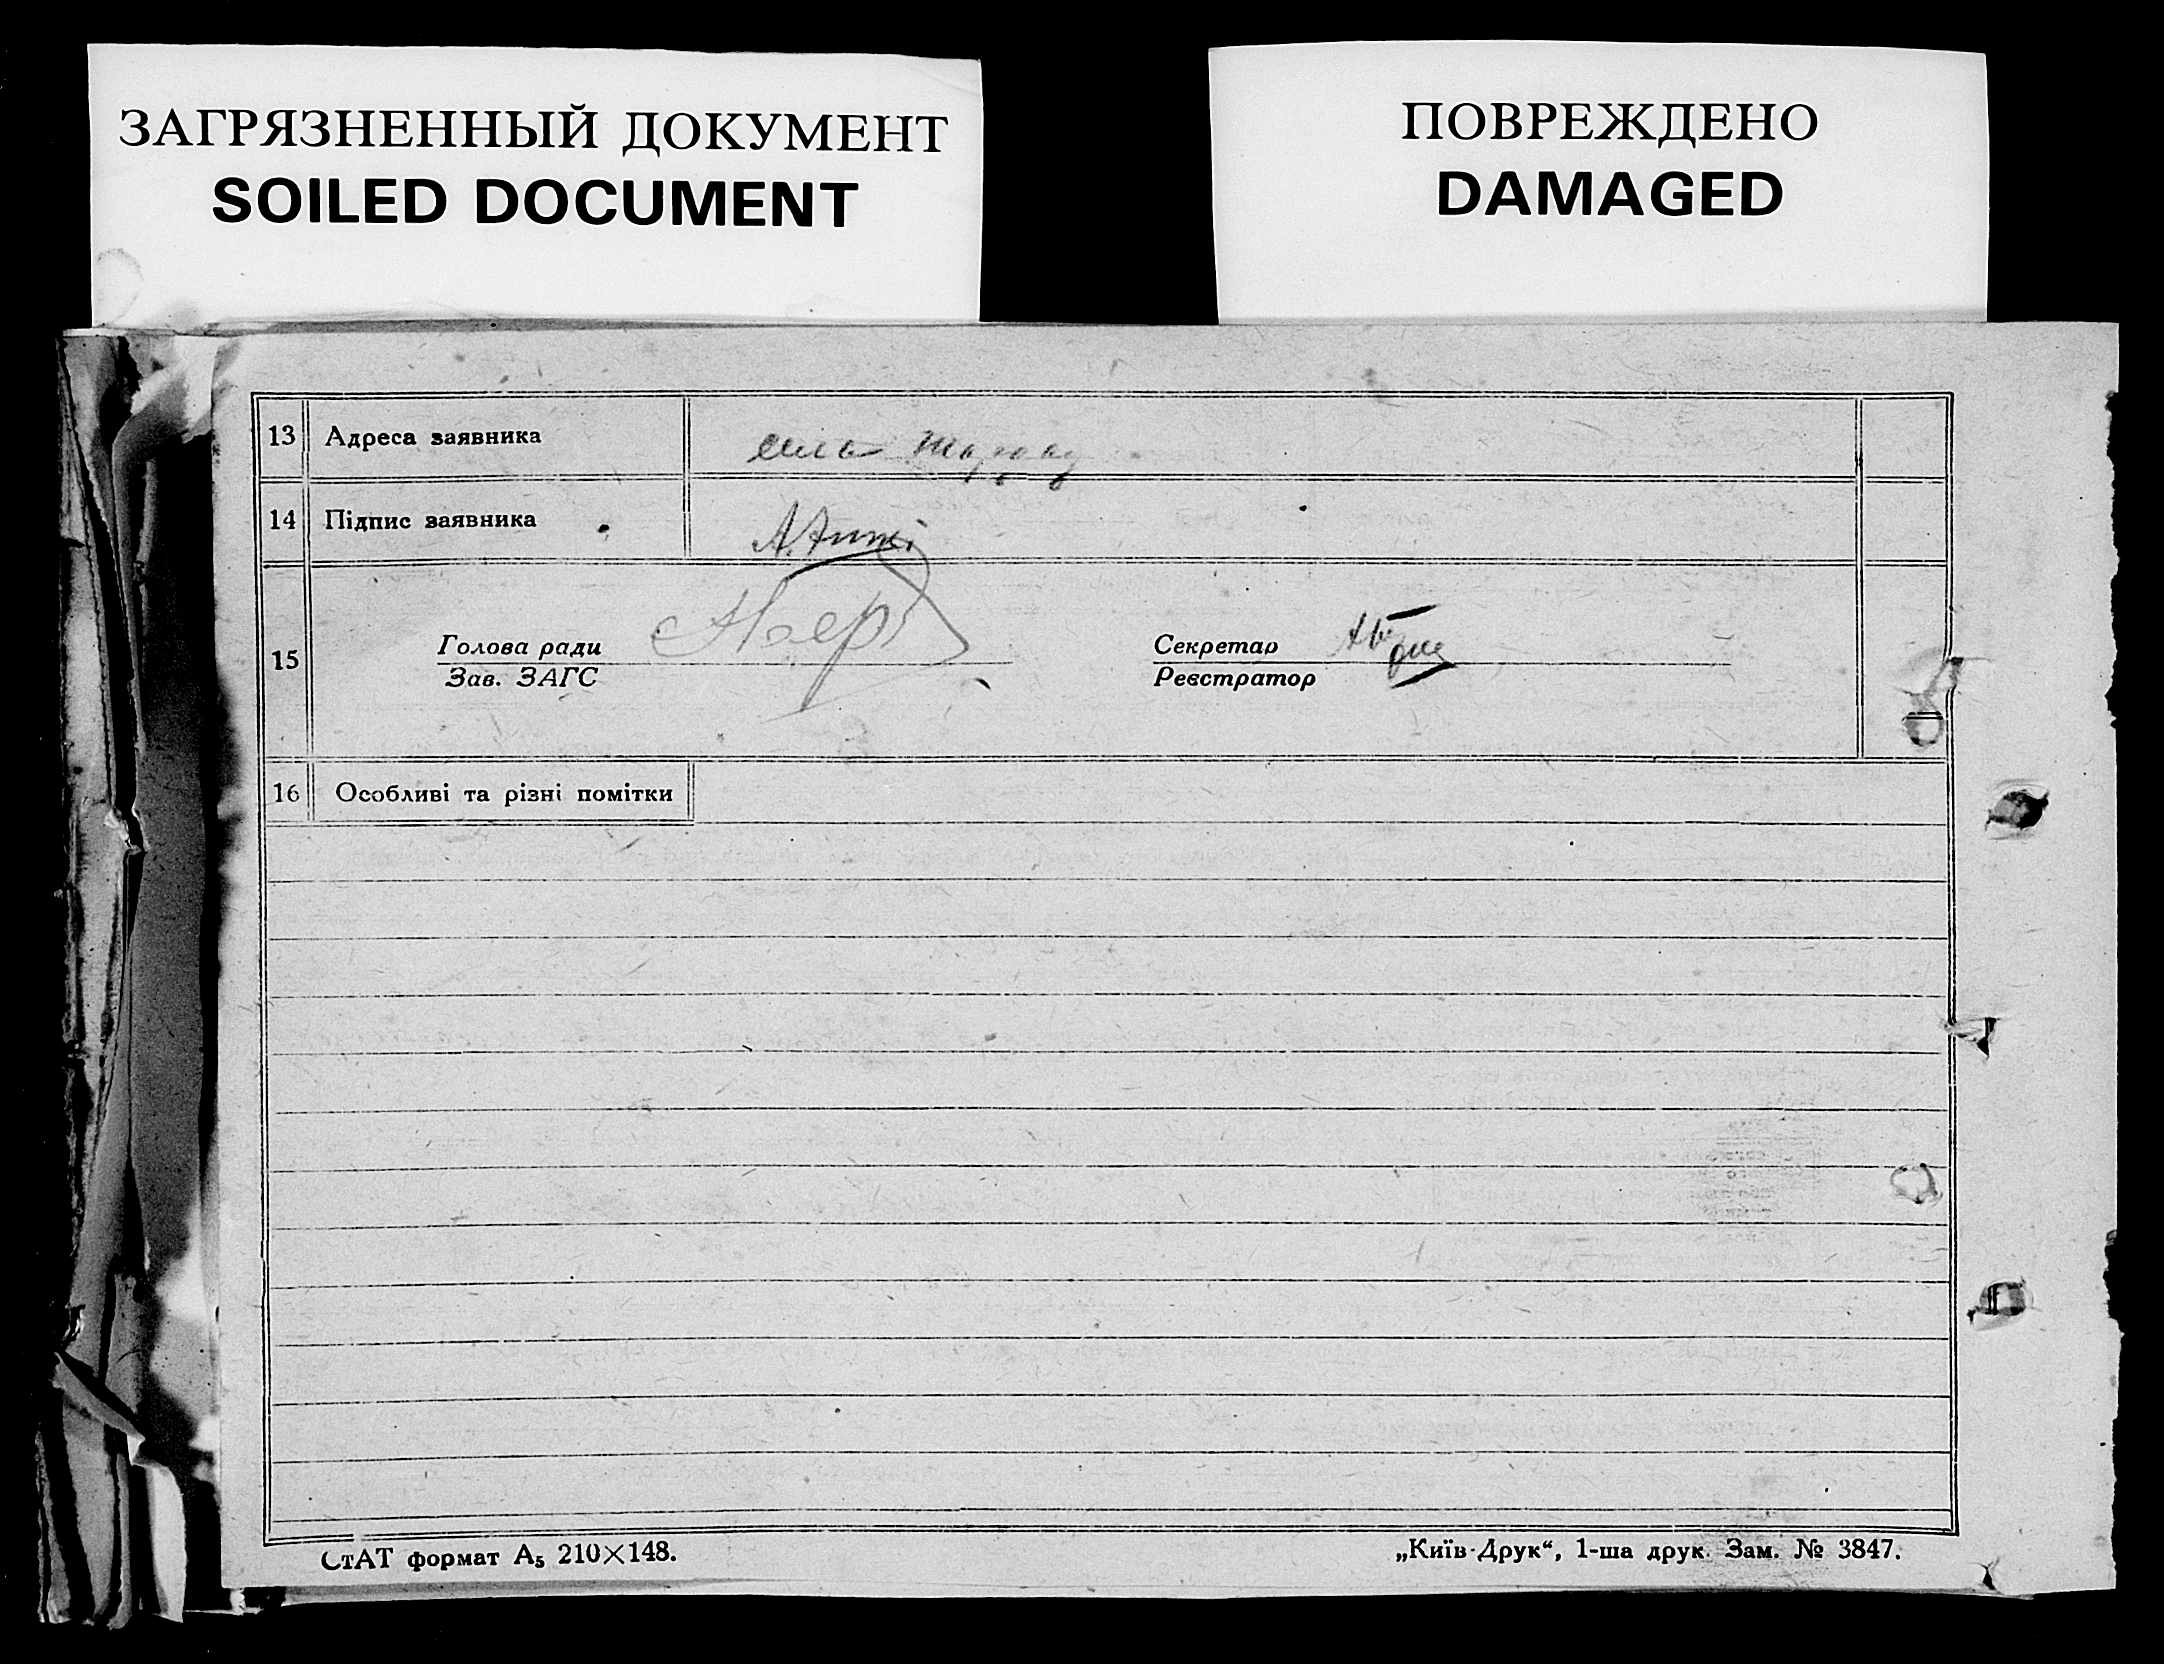 ЗАГРЯЗНЕННЫЙ ДОКУМЕНТ
SOILED DOCUMENT
ПОВРЕЖДЕНО
DAMAGED
13 Адреса заявника
14 Підпис заявника
15
Голова ради
Зав. ЗАГС
Секретар
Реєстратор
16 Особливі та різні помітки
СтАТ формат А₅ 210×148.
„Київ-Друк“, 1-ша друк. Зам. № 3847.